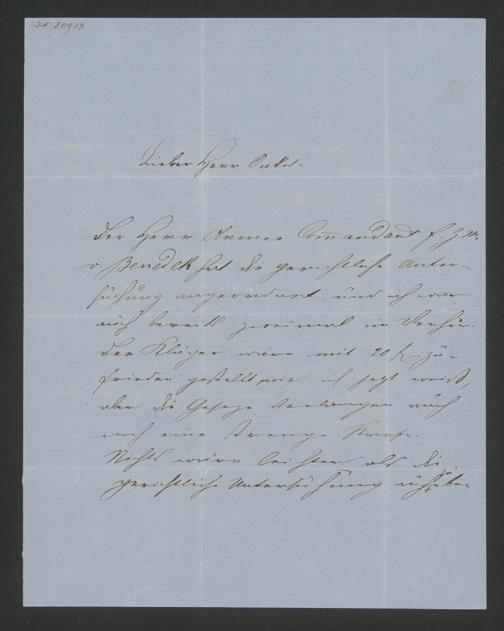 Lieber Herr
Der Herr Armee Commandant F. Z. M.
v. Benedek hat die gerichtliche Unter-
suchung angeordnet, und ich war
auch bereits zweimal im Verhör.
Der Kläger wäre mit 20 f. zu-
frieden gestellt wie ich jetzt weiß,
aber die Geseze verlangen auch
noch eine strenge Strafe.
Nichts wäre leichter als die
gerichtliche Untersuchung